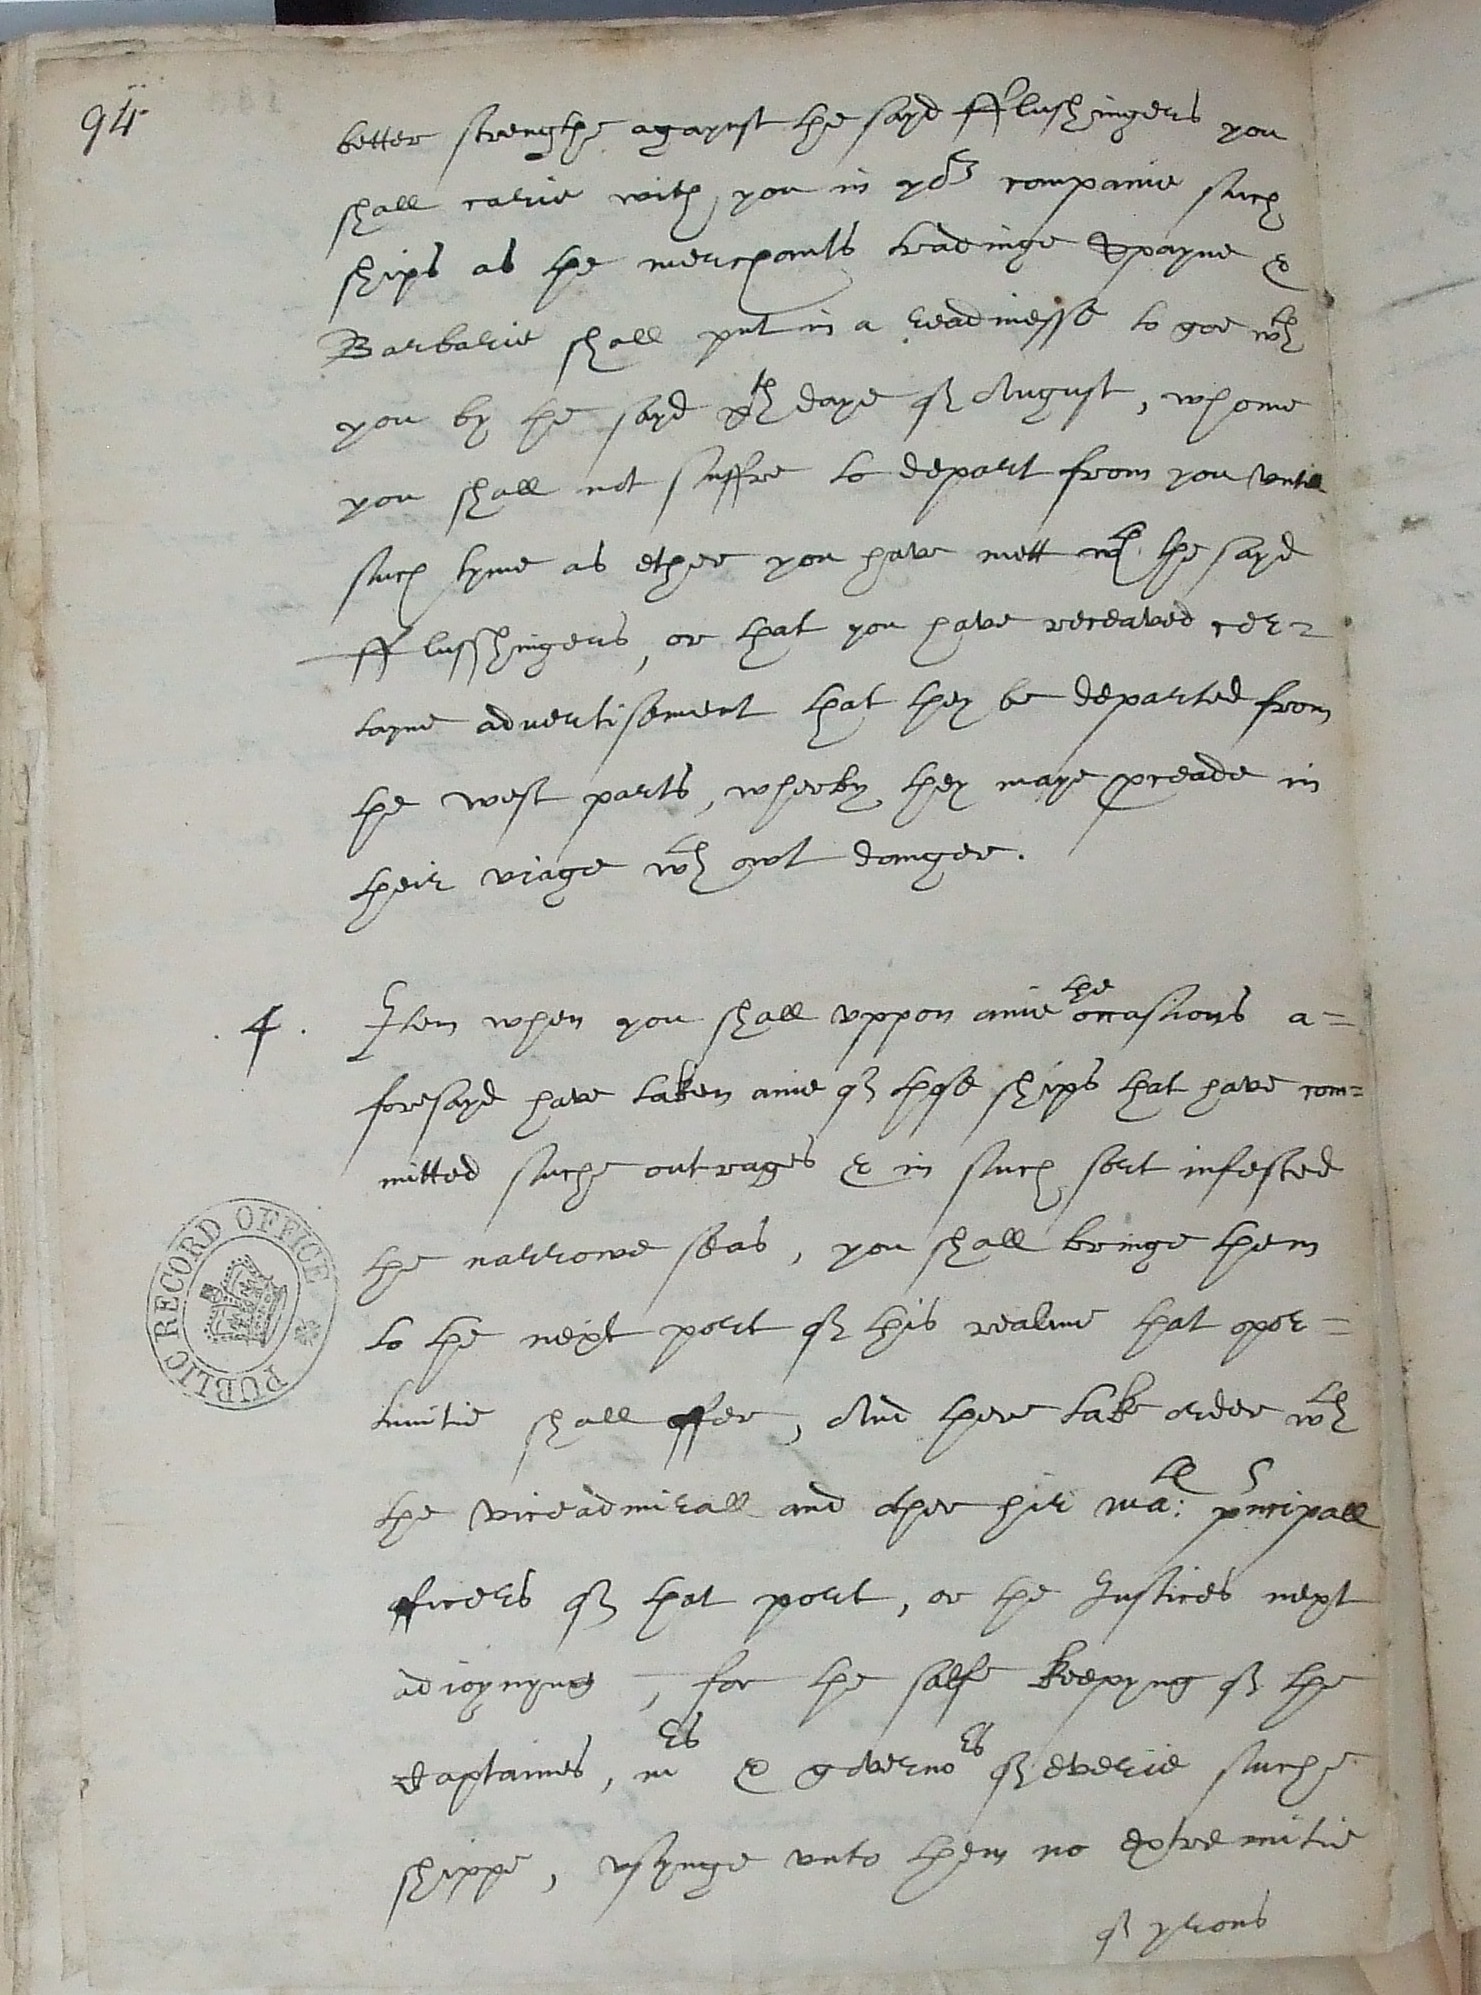 94
better strengthe agaynst the sayd fflushingers you
shall carie with you in yor companie such
ships as the merchants tradinge Spayne &
Barbarie shall put in a readinesse to goe wth
you by the sayd xth daye of August, whome
you shall not suffre to depart from you untill
such tyme as ether you have mett wth the sayd
fflusshingers, or that you have receaved cer-
tayne advertisement that they be departed from
the west parts, wherby they maye proceade in
their viage wth owt danger.
.4. Item when you shall uppon anie the occasions a=
foresayd have taken anie of those ships that have com=
mitted suche outrages & in such sort infested
the narrowe seas, you shall bringe them
to the next port of this realme that opor=
tunitie shall offer, And there take order wth
the viceadmirall and other hir Ma: tes principall
officers of that port, or the Justices next
adioynyng, for the salfe keepyng of the
Captaines, mrs & governors of everie suche
shippe, usynge unto them no extremitie
of yrons
PUBLIC RECORD OFFICE